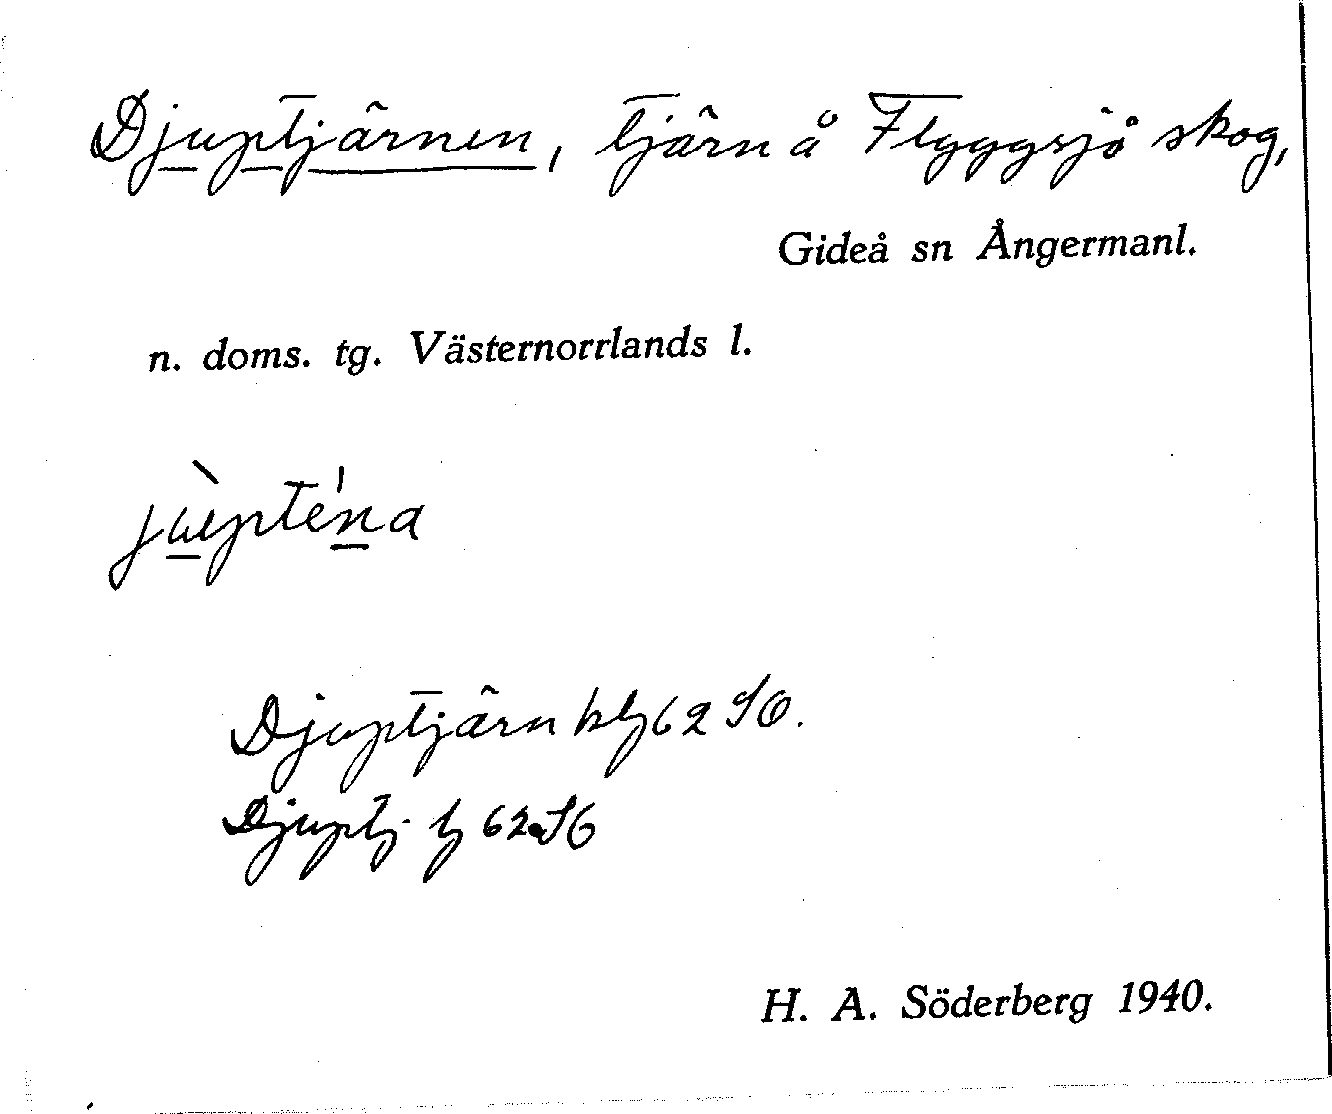 Djuptjärnen, tjärn å Flyggsjö skog,
Gideå sn Ångermanl.
n. doms. tg. Västernorrlands l.
Djuptjärn 62 SO.
Djuptj. 62 SO
H. A. Söderberg 1940.